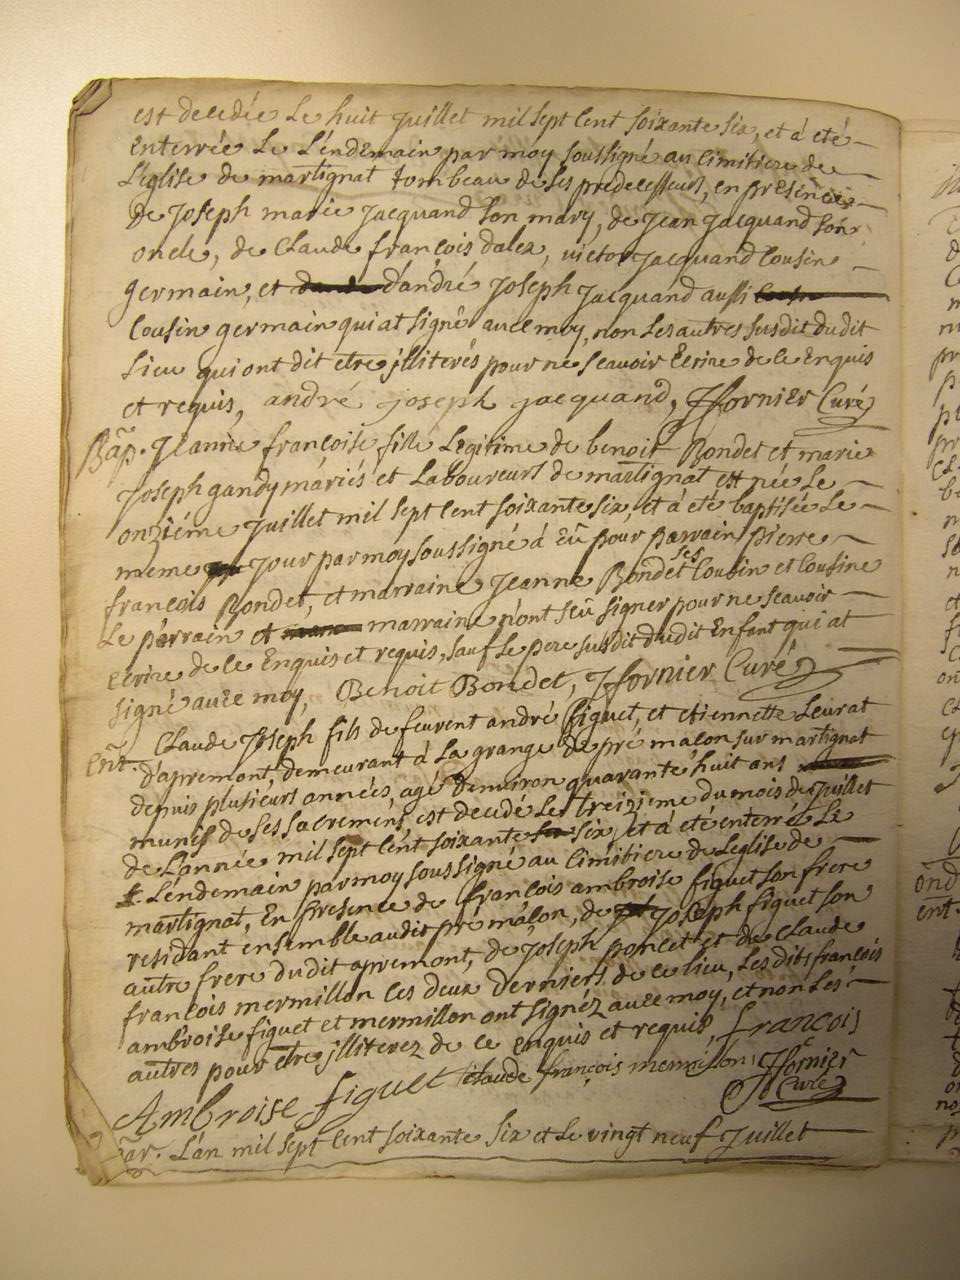 est decedée Le huit Juillet mil sept Cent soixante six, et à eté
Enterrée Le L'endemain par moy soussigné au cimitiere de
L'eglise de martignat tombeau de ses predecesseurs, en presence
de Joseph marie Jacquand son mary, de Jean Jacquand son
oncle, de Claude françois dalex, victor Jacquand Cousin
germain, et d'andré Joseph Jacquand aussi
Cousin germain qui at signé avec moy, non Les autres susdit dudit
Lieu qui ont dit etre jlliterés pour ne scavoir Ecrire de ce Enquis
et requis, andré joseph jacquand, JfFornier Curé
Bap. Jeanne françoise fille Legitime de benoit Bondet et marie
Joseph gandy mariés et Laboureurs de martignat est née Le
onziéme Juillet mil sept Cent soixante six, et à eté baptisée Le
meme Jour par moy soussigné à Eû pour parrain Pierre
françois Bondet, et marraine Jeanne Bondet ses Cousin et Cousine
Le parrain et marraine n'ont sçû signer pour ne scavoir
Ecrire de ce Enquis et requis, sauf Le pere susdit dudit Enfant qui at
signé avec moy, Benoit Bondet, JfFornier Curé
Ent. Claude Joseph fils de feurent andré figuet, et etiennette Leurat
d'apremont, demeurant à La grange de pré malon sur martignat
depuis plusieurs années, agé denviron quarante huit ans
munis de ses sacremens est decedé Le treizieme du mois de Juillet
de L'année mil sept Cent soixante six, et à eté enterré Le
L'endemain par moy soussigné au Cimitiere de L'eglise de
martignat, En presence de françois ambroise figuet son frere
residant ensemble audit pré malon, de Joseph figuet son
autre frere dudit apremont, de Joseph poncet et de Claude
françois mermillon ces deux Derniers de ce lieu, Les dits françois
ambroise figuet et mermillon ont signéz avec moy, et non Les
autres pour être jlliterez de ce enquis et requis, françois
Ambroise figuet Claude françois mermillon JfFornier
Curé
mar. L'an mil sept Cent soixante six et Le vingt neuf Juillet